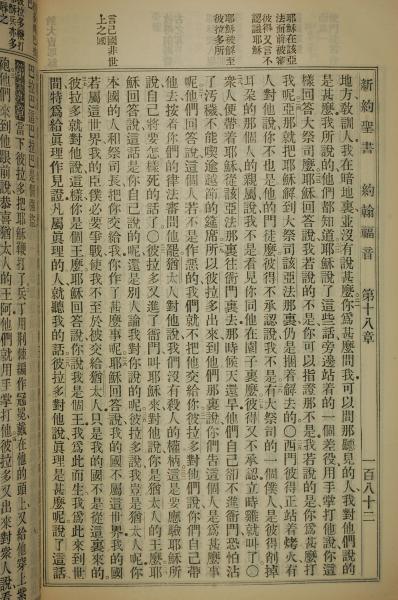 新約聖書 約翰福音 第十八章 一百八十二
耶穌在該亞
法面前被審
彼得又言不
認識耶穌
耶穌被解至
彼拉多所
言己國非世
上之國
地方敎訓人我在暗地裏並沒有說甚麼你爲甚麼問我可以問那聽見的人我對他們說的
是甚麼我所說的他們都知道耶穌說了這些話旁邊站着的一個差役用手掌打他說你這
樣回答大祭司麼耶穌回答說我若說的不是你可以指證那不是我若說的是你爲甚麼打
我呢亞那就把耶穌解到大祭司該亞法那裏仍是捆着解去的〇西門彼得正站着烤火有
人對他說你不也是他的門徒麼彼得不承認說我不是有大祭司的一個僕人是彼得削掉
耳朵的那個人的親屬說我不是看見你同他在園子裏麼彼得又不承認立時雞就叫了〇
衆人便帶着耶穌從該亞法那裏往衙門裏去那時候天還早他們自己卻不進衙門恐怕沾
了汚穢不能喫逾越節的筵席所以彼拉多出來到他們那裏說你們告這個人是爲甚麼事
呢他們回答說這個人若不是作惡的我們就不把他交給你彼拉多對他們說你們自己帶
他去按着你們的律法審問他罷猶太人對他說我們沒有殺人的權柄這是要應驗耶穌所
說自己將要怎樣死的話了〇彼拉多又進了衙門叫耶穌來對他說你是猶太人的王麼耶
穌回答說這話是你自己說的呢還是別人論我對你說的呢彼拉多說我豈是猶太人呢你
本國的人和祭司長把你交給我你作了甚麼事呢耶穌回答說我的國不屬這世界我的國
若屬這世界我的臣僕必要爭戰使我不至於被交給猶太人只是我的國不是從這裏來的
彼拉多就對他說這樣你是個王麼耶穌回答說你說我是個王我爲此而生我爲此來到世
間特爲給眞理作見證凡屬眞理的人就聽我的話彼拉多對他說眞理是甚麼呢說了這話
當下彼拉多把耶穌鞭打了兵丁用荊棘編作冠冕戴在他的頭上又給他穿上紫
他們來到他跟前說恭喜猶太人的王阿他們就用手掌打他彼拉多又出來對衆人說看